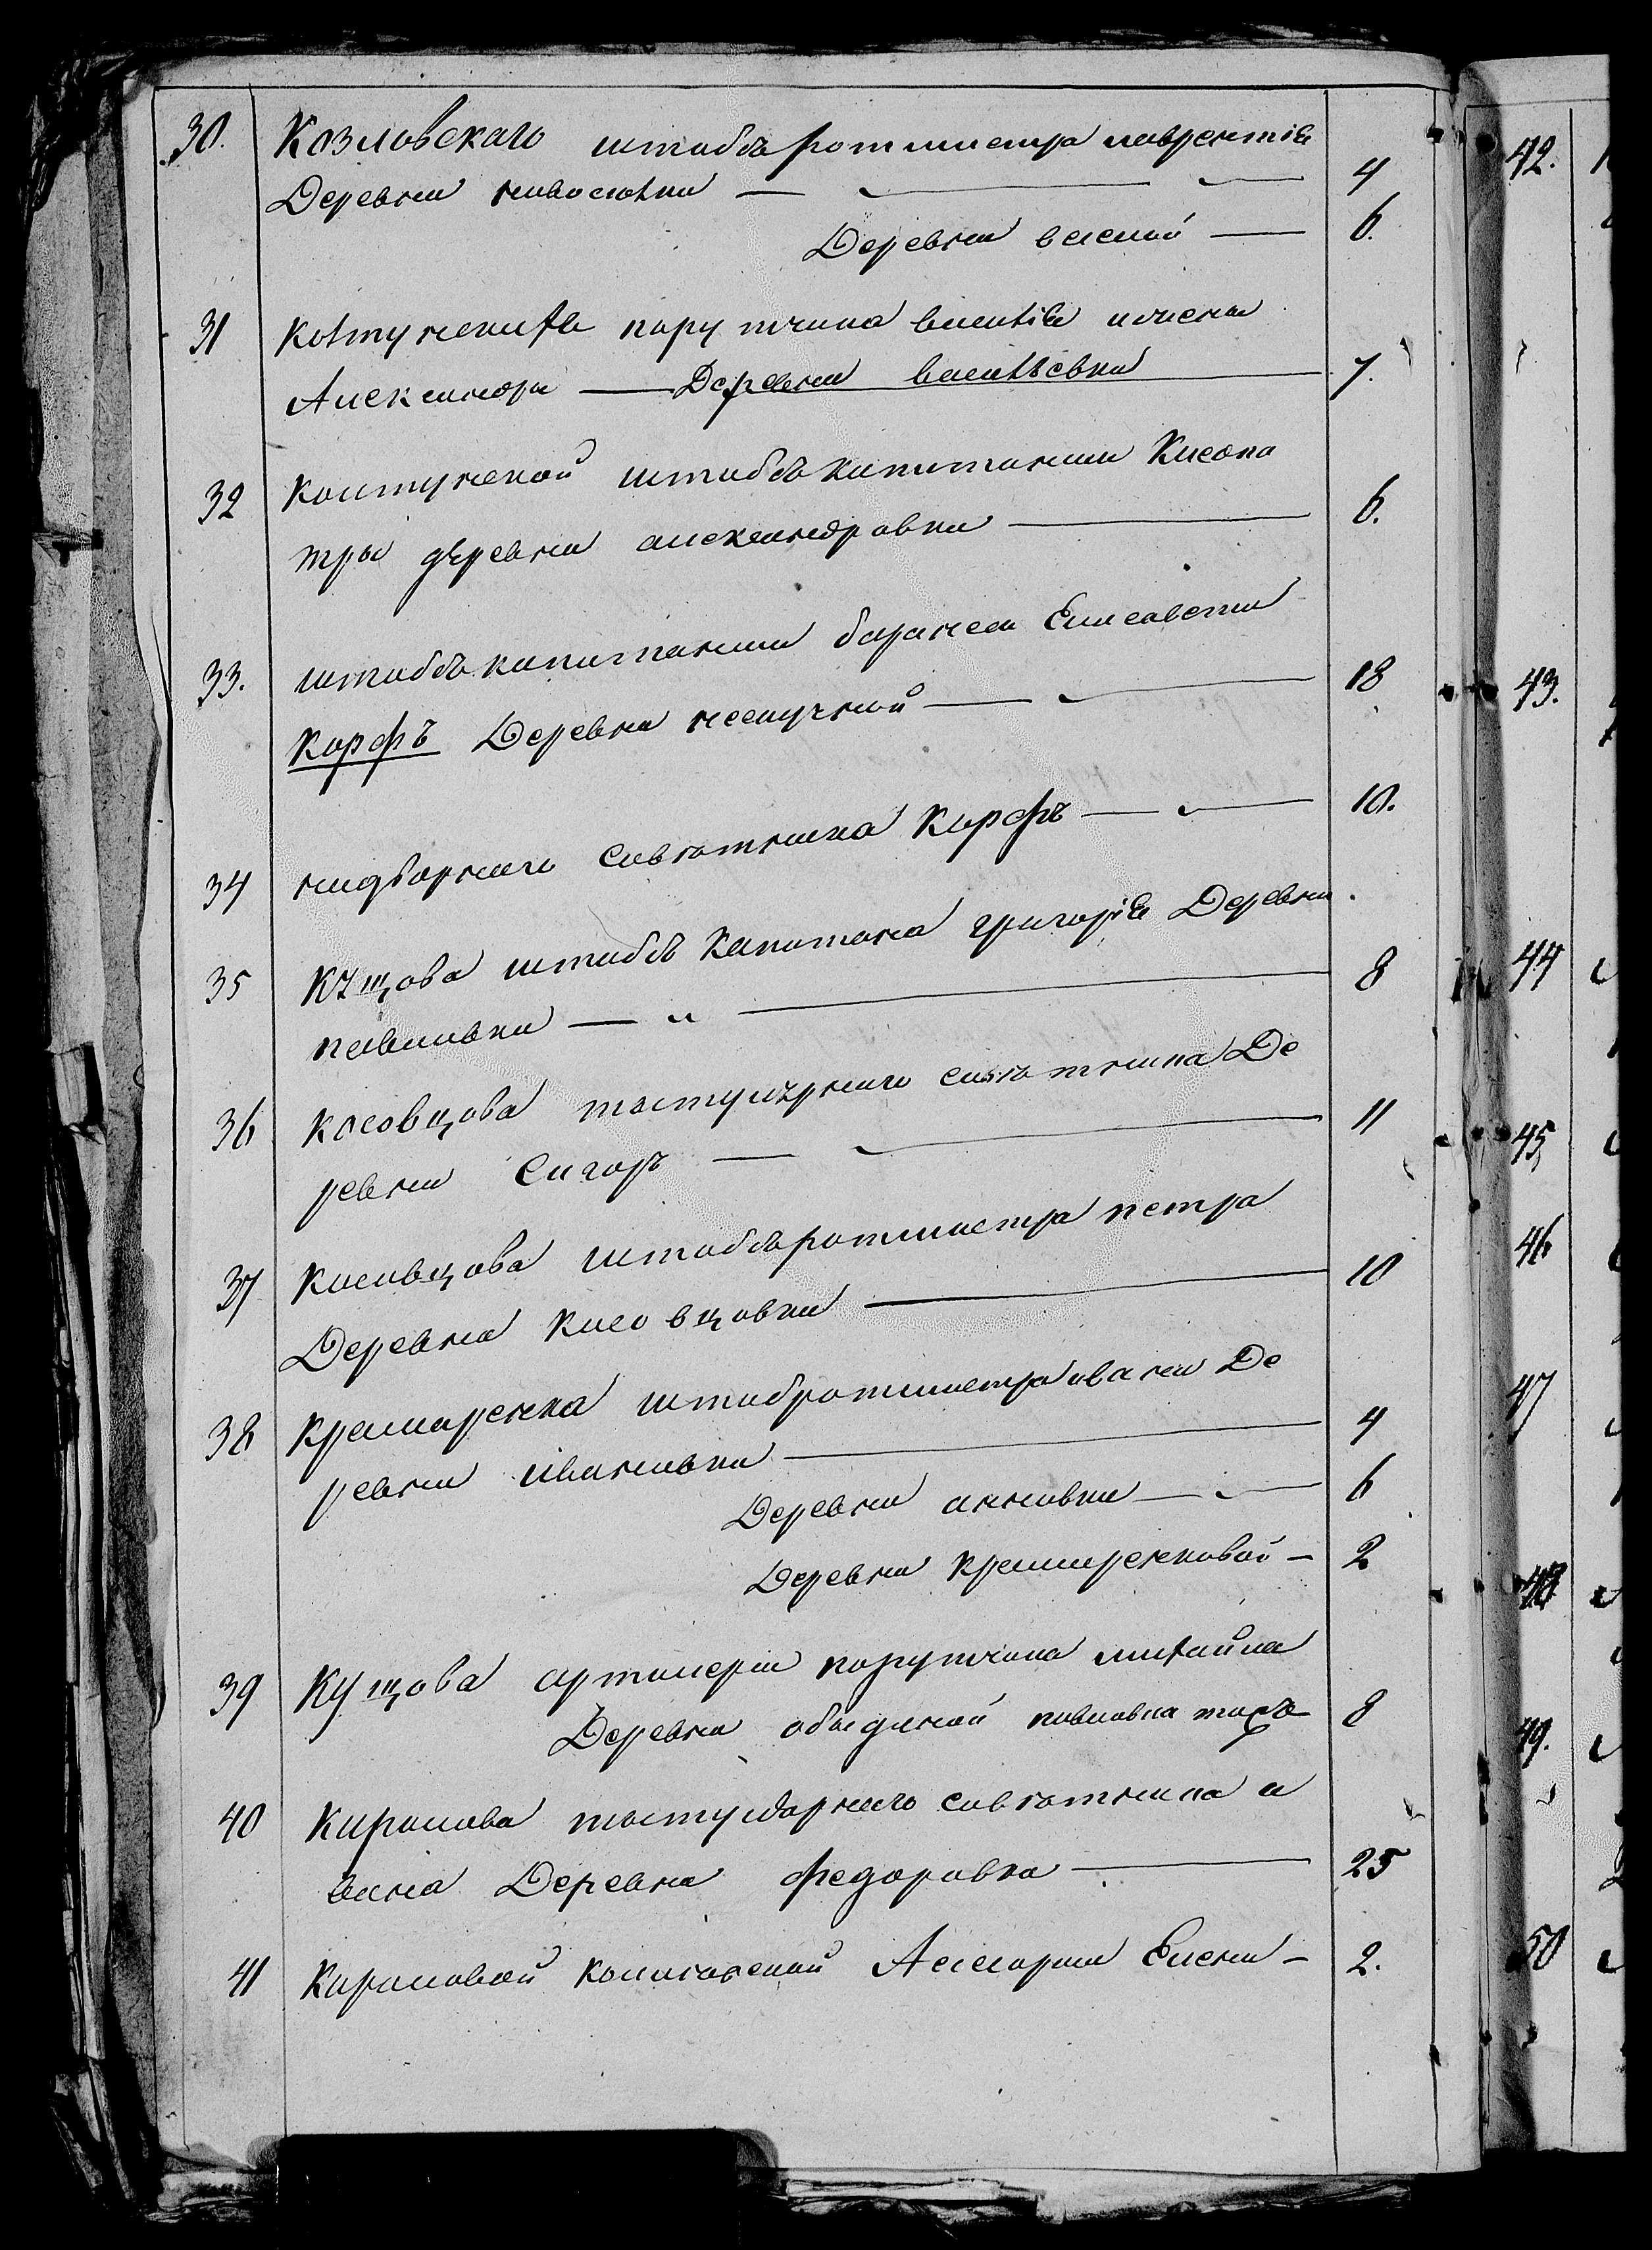 30. Козловскаго штабсъ ротмистра лаврентія
Деревни новоселки — 4
Деревни веселой — 6.
31 порутчика василія и члена
Александра — Деревни васильевки 7.
32 Колтунской штабсъ капитанши Клеопа
тры деревни александровки — 6.
33. штабсъ капитанши баронесы Елисаветы
Корфъ Деревни нескучной — 18
34 надворнаго совѣтника Корфъ — 10.
35 Кущова штабсъ капитана григорія Деревни
павловки — „ — 8
36 Косовцова титулярнаго совѣтника Де
ревни — 11
37 Косовцова штабсъ ротмистра петра
Деревни Косовцовки — 10
38 Крамаренка штабротмистра ивана Де
ревни ивановки — 4
Деревни анновки — 6
Деревни Крамаренковой — 2
39 Кущова артилеріи порутчика михайла
Деревни обыдиной павловка тожъ 8
40 титулярнаго совѣтника и
вана Деревни федоровка — 25
41 колежской Асесорши Елены — 2.
42.
43.
44
45
46
47
48
49.
50